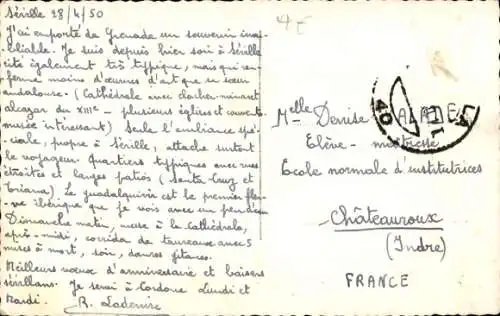 Séville 28/4/50
J'ai emporté de Grenade un souvenir inou-
bliable. Je suis depuis hier soir à Séville
cité également très typique, mais qui ren-
ferme moins d'œuvres d'art que sa sœur
andalouse. (Cathédrale avec clocher-minaret
alcazar du XIIIe - plusieurs églises et couvents
musée intéressant) Seule l'ambiance spé-
ciale, propre à Séville, attache surtout
le voyageur. Quartiers typiques avec rues
étroites et larges patios (Santa Cruz et
Triana). Le guadalquivir est le premier fleu-
ve ibérique que je vois avec un peu d'eau
Dimanche matin, messe à la Cathédrale,
après-midi, corrida de taureaux avec 5
mises à mort, soir, danses gitanes.
Meilleurs vœux d'anniversaire et baisers
sévillans. Je serai à Cordoue Lundi et
Mardi. R. Ladevire
Melle Denise
Elève-maîtresse
Ecole normale d'institutrices
Châteauroux
(Indre)
FRANCE